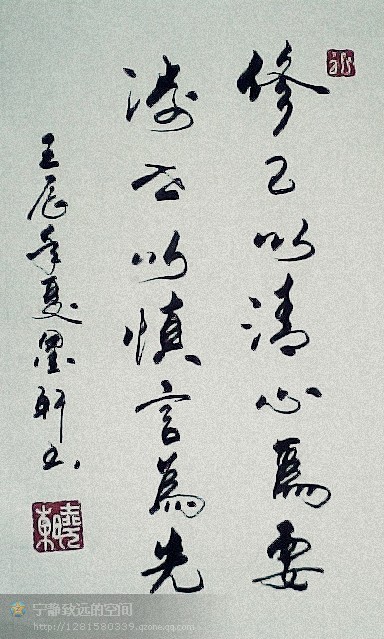 修己以清心為要
涉世以慎言為先
壬辰年夏墨軒书
宁静致远的空间
http://1281580339.qzone.qq.com